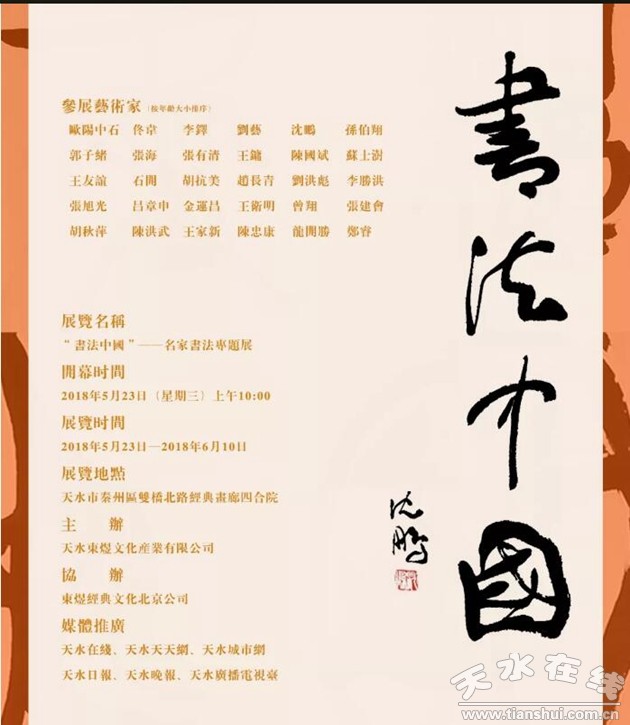 參展藝術家（按年齡大小排序）
歐陽中石 佟韋 李鐸 劉藝 沈鵬 孫伯翔
郭子緒 張海 張有清 王鏞 陳國斌 蘇士澍
王友誼 石開 胡抗美 趙長青 劉洪彪 李勝洪
張旭光 呂章申 金運昌 王衛明 曾翔 張建會
胡秋萍 陳洪武 王家新 陳忠康 龍開勝 鄭睿
展覽名稱
“書法中國”——名家書法專題展
開幕时間
2018年5月23日（星期三）上午10:00
展覽时間
2018年5月23日—2018年6月10日
展覽地點
天水市秦州區雙橋北路經典畫廊四合院
主 辦
天水東煜文化產業有限公司
協 辦
東煜經典文化北京公司
媒體推廣
天水在綫、天水天天網、天水城市網
天水日報、天水晚報、天水廣播電視臺
書法中國
沈鵬
天水在线
www.tianshui.com.cn